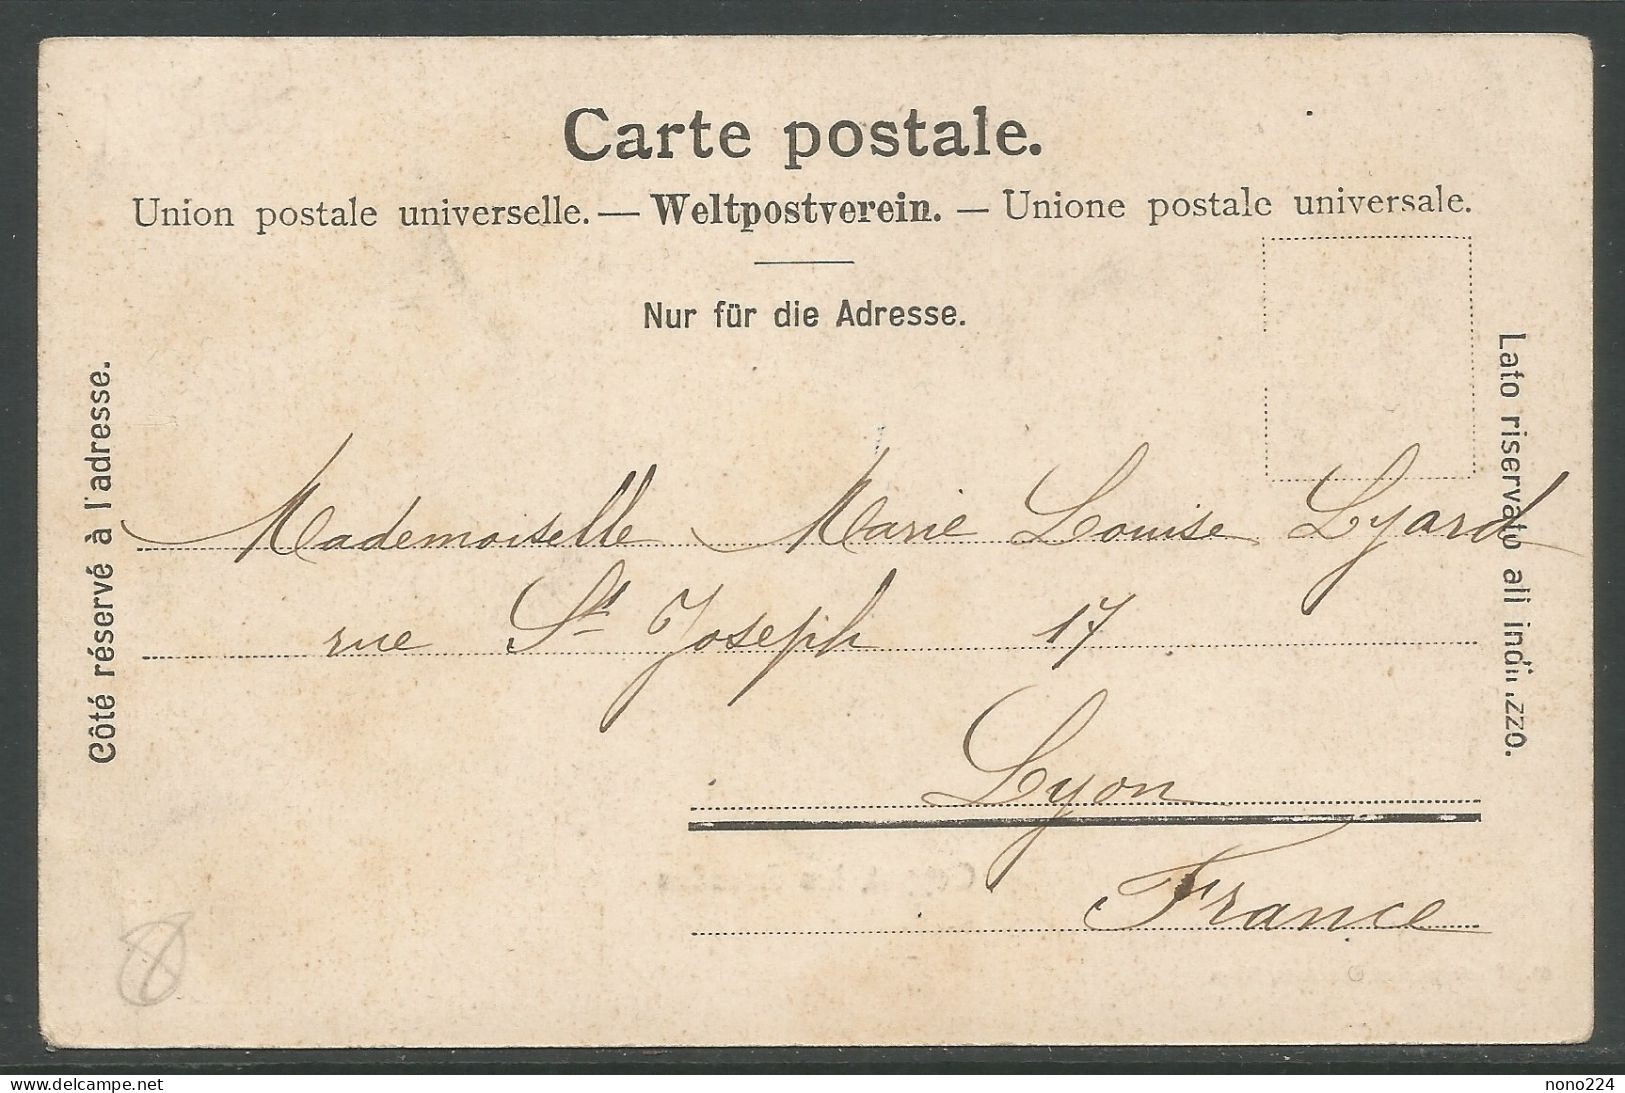 Carte postale.
Union postale universelle. — Weltpostverein. — Unione postale universale.
Nur für die Adresse.
Côté réservé à l'adresse.
Lato riservato all indirizzo.
Mademoiselle Marie Louise Lyard
rue St Joseph 17
Lyon
France
8
delcampe.net
nono224